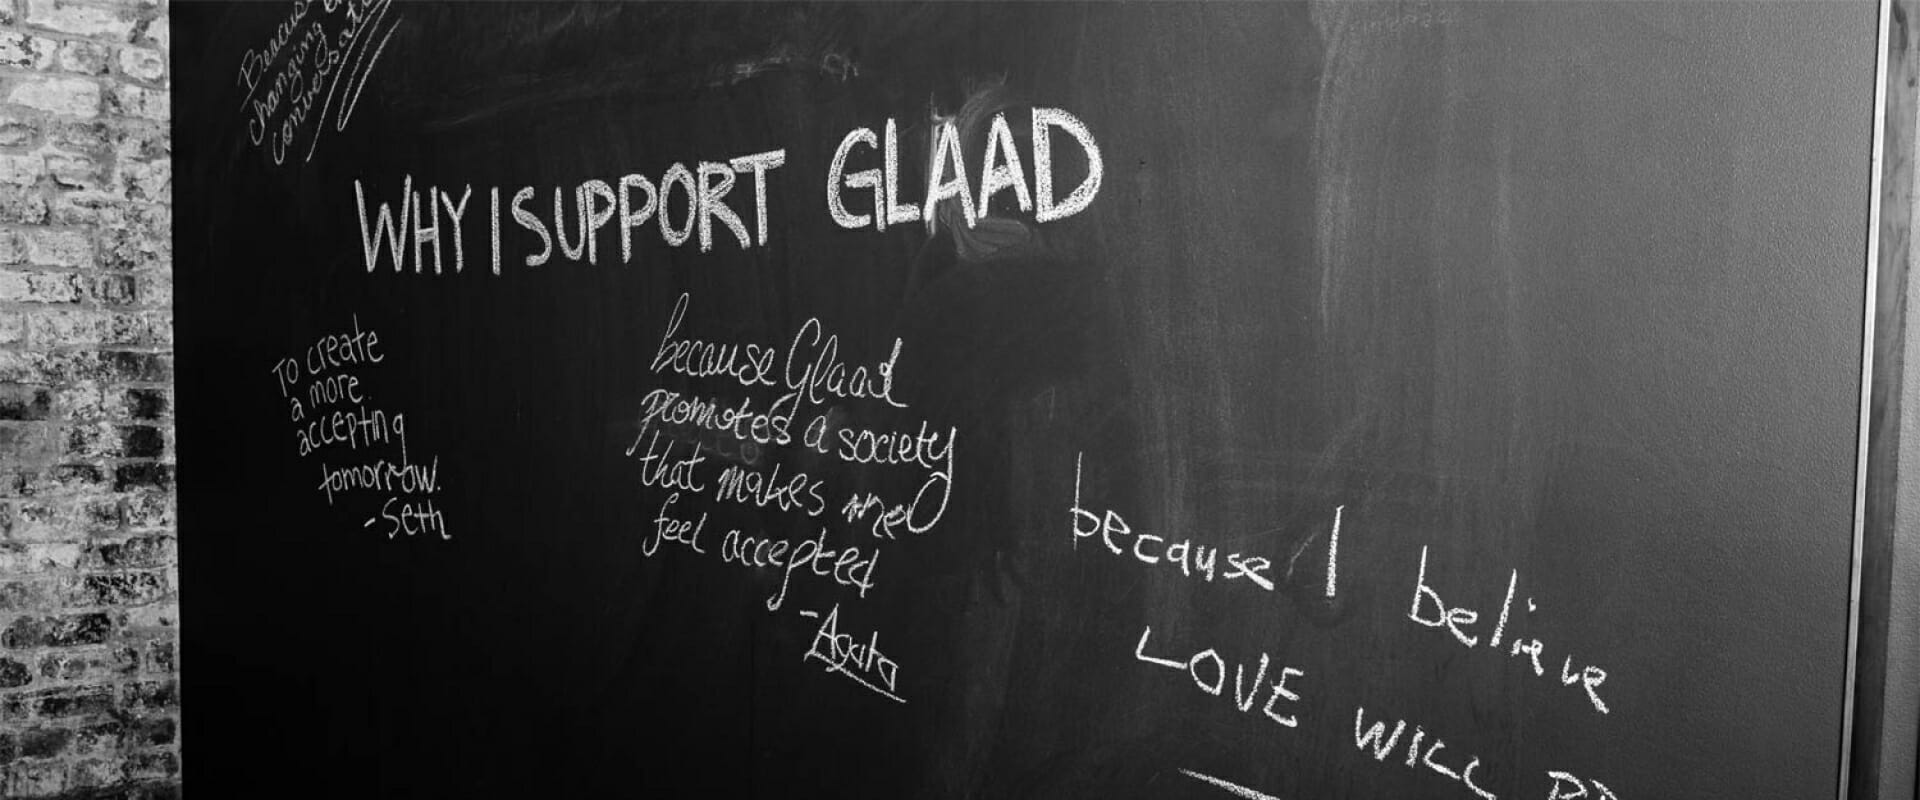 changing
WHY I SUPPORT GLAAD
To create
a more
accepting
tomorrow.
-Seth
because Glaad
promotes a society
that makes me
feel accepted
-Agata
because I believe
LOVE WILL